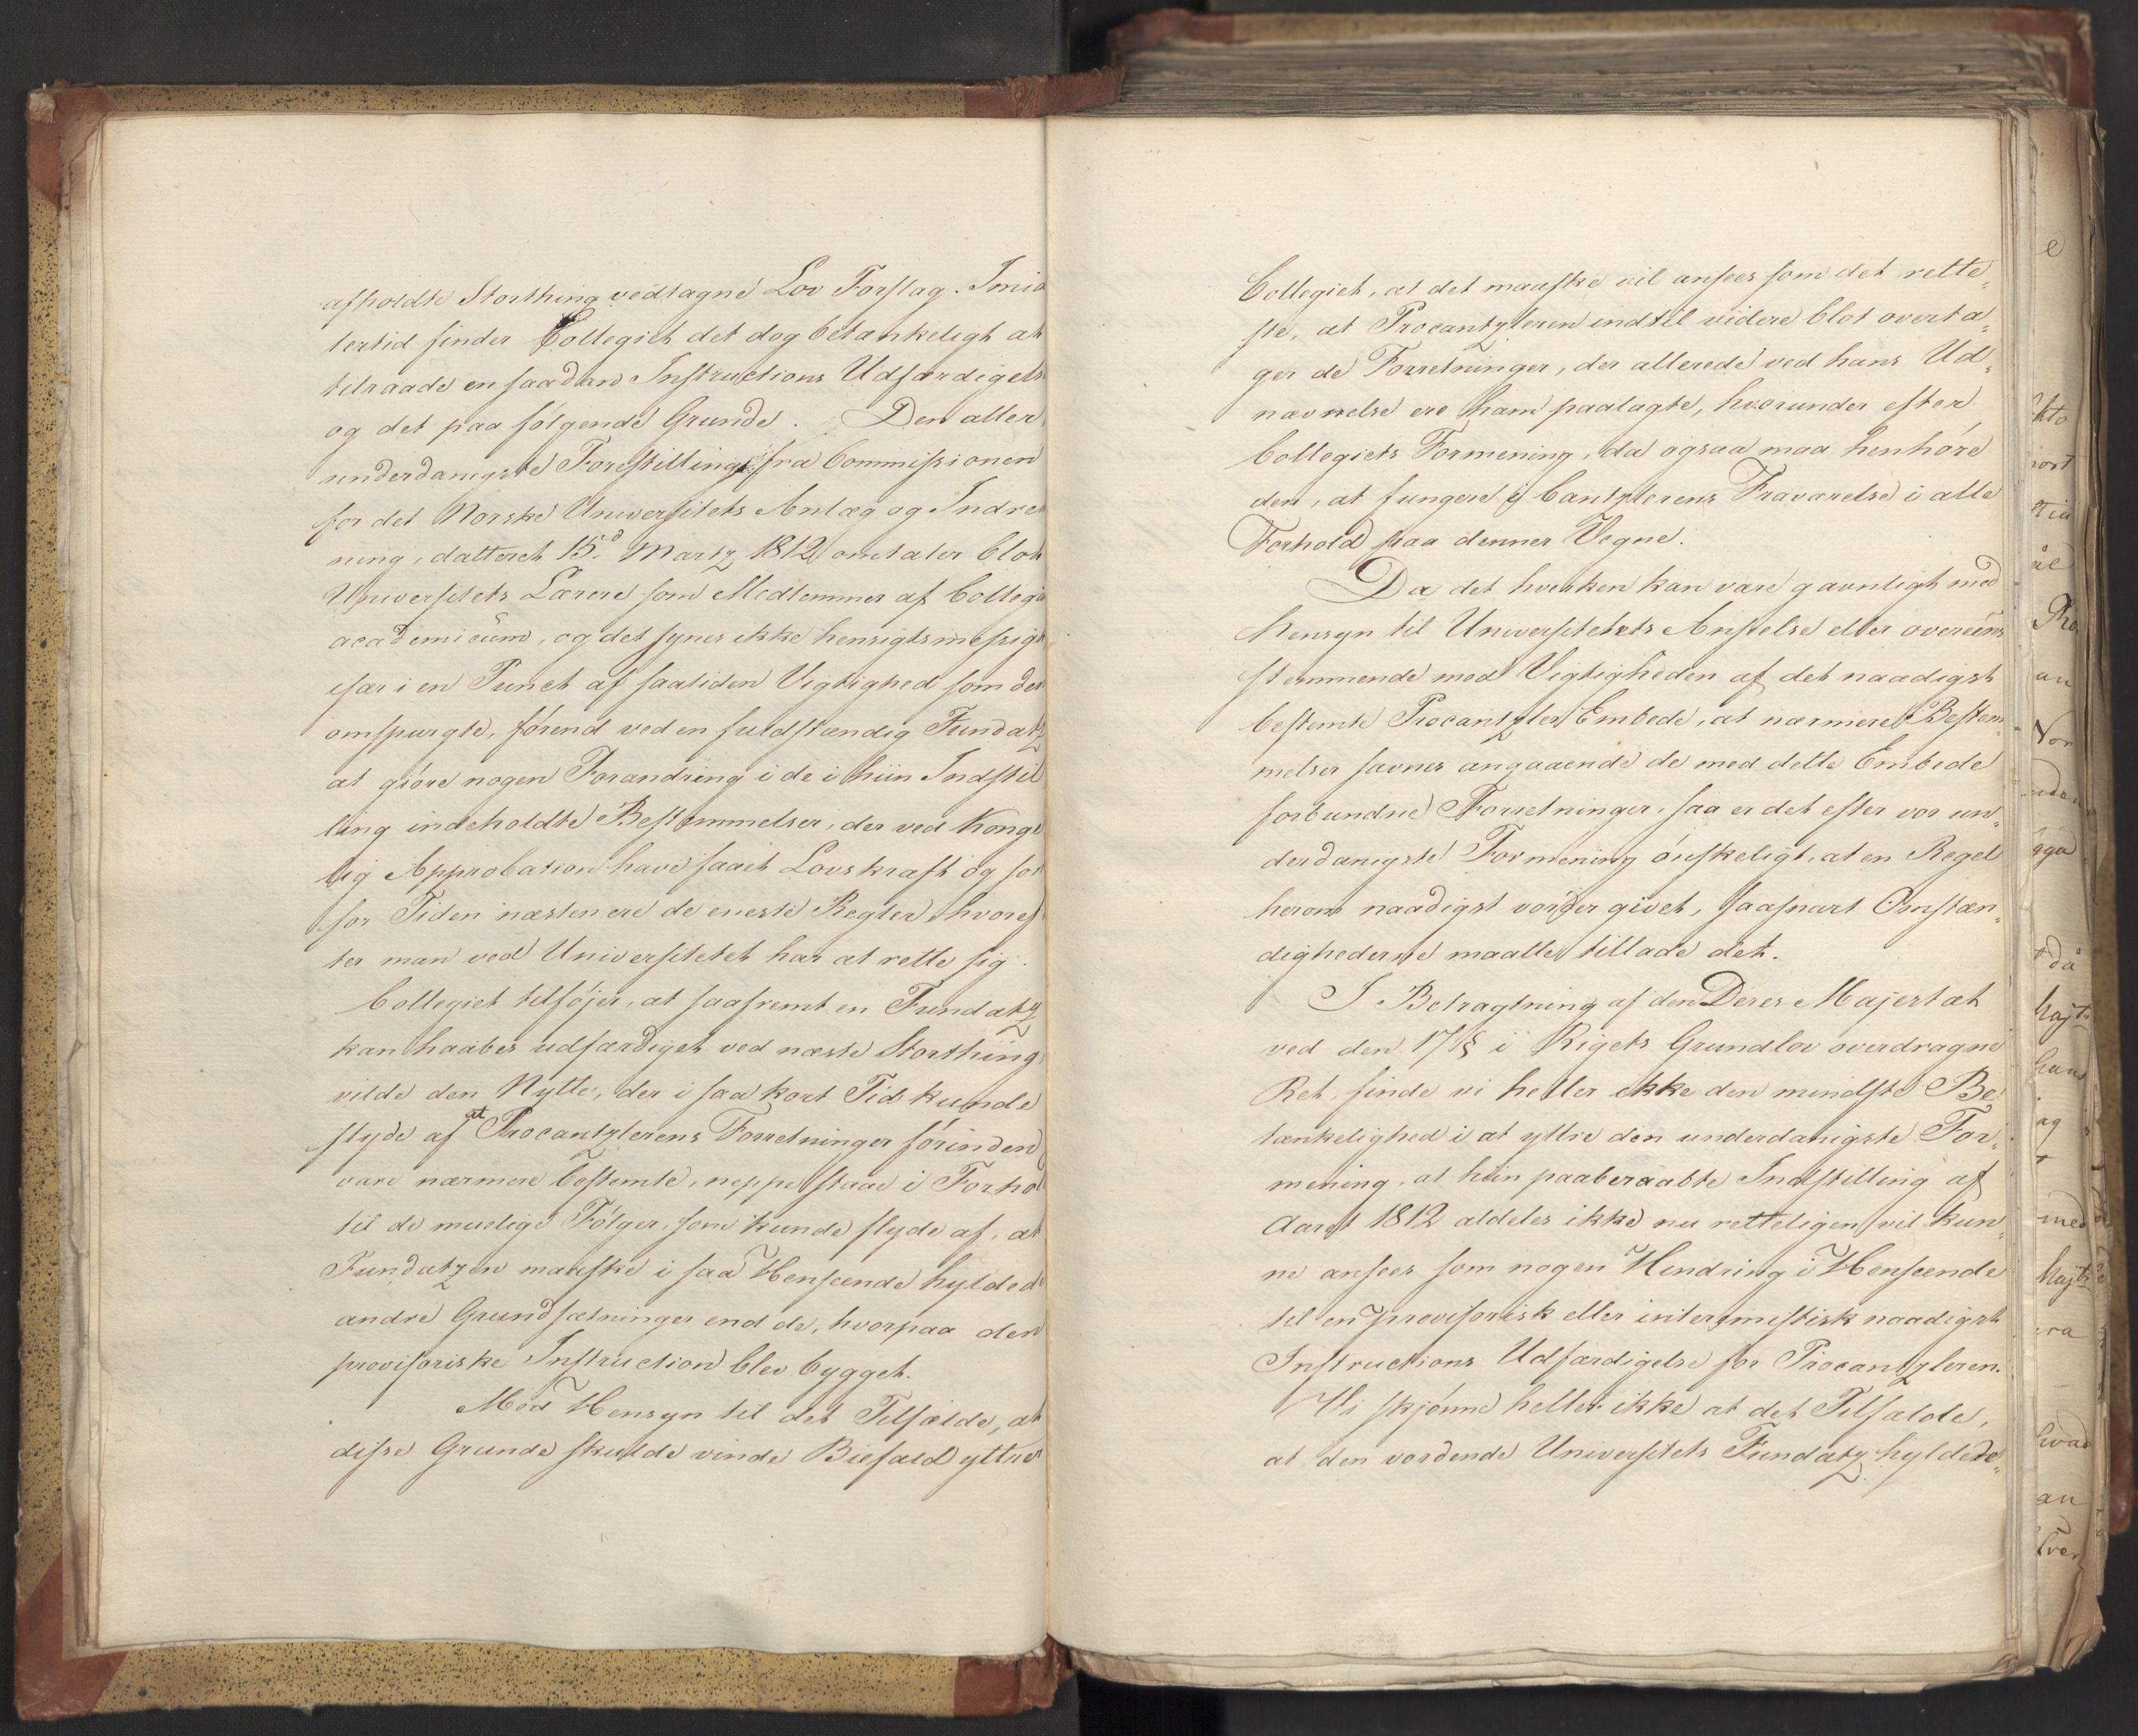 afholdte Storthing vedtagne Lov Forslag. Imid
lertid finder Collegiet det dog betænkeligt at
tilraade en saadan Instructions Udfærdigelse
og det paa følgende Grunde. Den aller
underdanigste Forestilling fra Commissionen
for det Norske Universitets Anlæg og Indret
ning, datteret 15d Martz 1812 omtaler blot
Universitets Lærere som Medlemmer af Collegi
academicum, og det synes ikke hensigtsmessigt
især i en Punct af saaliden Vigtighed som det
omspurgte, førend ved en fuldstændig Fundatz
at giøre nogen Forandring i de i hiin Indstil
ling indeholdte Bestemmelser, der ved Konge
lig Approbation have faaet Lovskraft og som
for Tiden næsten ere de eneste Regler, hvoref
ter man ved Universitetet har at rette sig.
Collegiet tilføjer, at saafremt en Fundatz
kan haabes udfærdiget ved næste Storthing
vilde den Nytte, der i saa kort Tid kunde
flyde af at Procantzlerens Forretninger førinden
vare nærmere bestemte, neppe staae i Forhold
til de muelige Følger, som kunde flyde af, at
Fundatzen maaske i saa Henseende hylded
andre Grundsætninger end de, hvorpaa den
provisoriske Instruction blev bygget.
Med Hensyn til det Tilfælde, at
disse Grunde skulde vinde Biefald yttrer
Collegiet, at det maaske vil ansees som det rette„
ste, at Procantzleren indtil videre blot overta„
ger de Forretninger, der allerede ved hans Ud„
nævnelse ere ham paalagte, hvorunder efter
Collegiets Formening, da ogsaa maa henhøre
den, at fungere i Cantzlerens Fraværelse i alle
Forhold paa dennes Vegne.
Da det hverken kan være gavnligt med
Hensyn til Universitetets Anstelse eller overeens
stemmende med Vigtigheden af det naadigst
bestemte Procantzler Embede, at nærmere Bestem„
melser savnes angaaende de med dette Embede
forbundne Forretninger, saa er det efter vor un„
derdanigste Formening ønskeligt, at en Regel
herom naadigst vorder givet, saasnart Omstæn„
dighederne maatte tillade det.
I Betragtning af den Deres Majestæt
ved den 17 § i Rigets Grundlov overdragne
Ret, finde vi heller ikke den mindste Be„
tænkelighed i at yttre den underdanigste For„
mening, at hiin paaberaabte Indstilling af
Aaret 1812 aldeles ikke nu retteligen vil kun„
ne ansees som nogen Hindring i Henseende
til en provisorisk eller interimistisk naadigst
Instructions Udfærdigelse for Procantzleren.
Vi skjønne heller ikke at det Tilfælde,
at den vordende Universitets Fundatz hyldede„